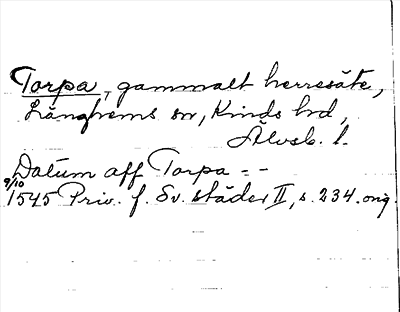 Torpa, gammalt herresäte,
Länghems sn, Kinds hrd,
Älvsb. l.
Datum aff Torpa - -
9/10 1545 Priv. f. Sv. städer II, s. 234. orig.